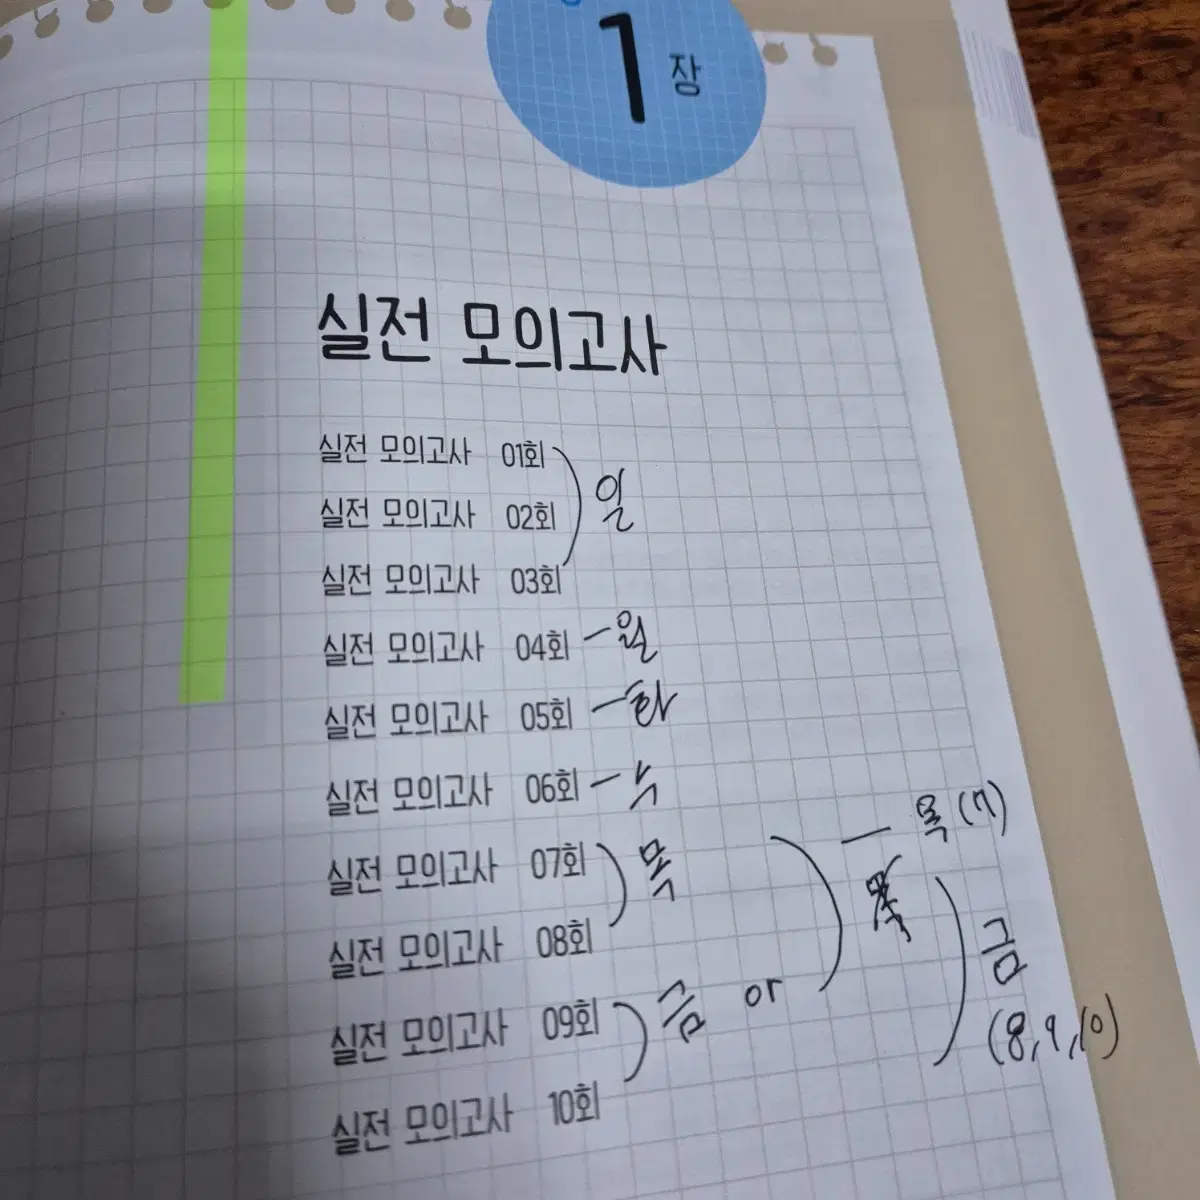 1장
실전 모의고사
실전 모의고사 01회
실전 모의고사 02회 일
실전 모의고사 03회
실전 모의고사 04회 - 월
실전 모의고사 05회 - 화
실전 모의고사 06회 - 수
실전 모의고사 07회 목 — 목 (7)
실전 모의고사 08회 금
실전 모의고사 09회 금 or (8, 9, 10)
실전 모의고사 10회